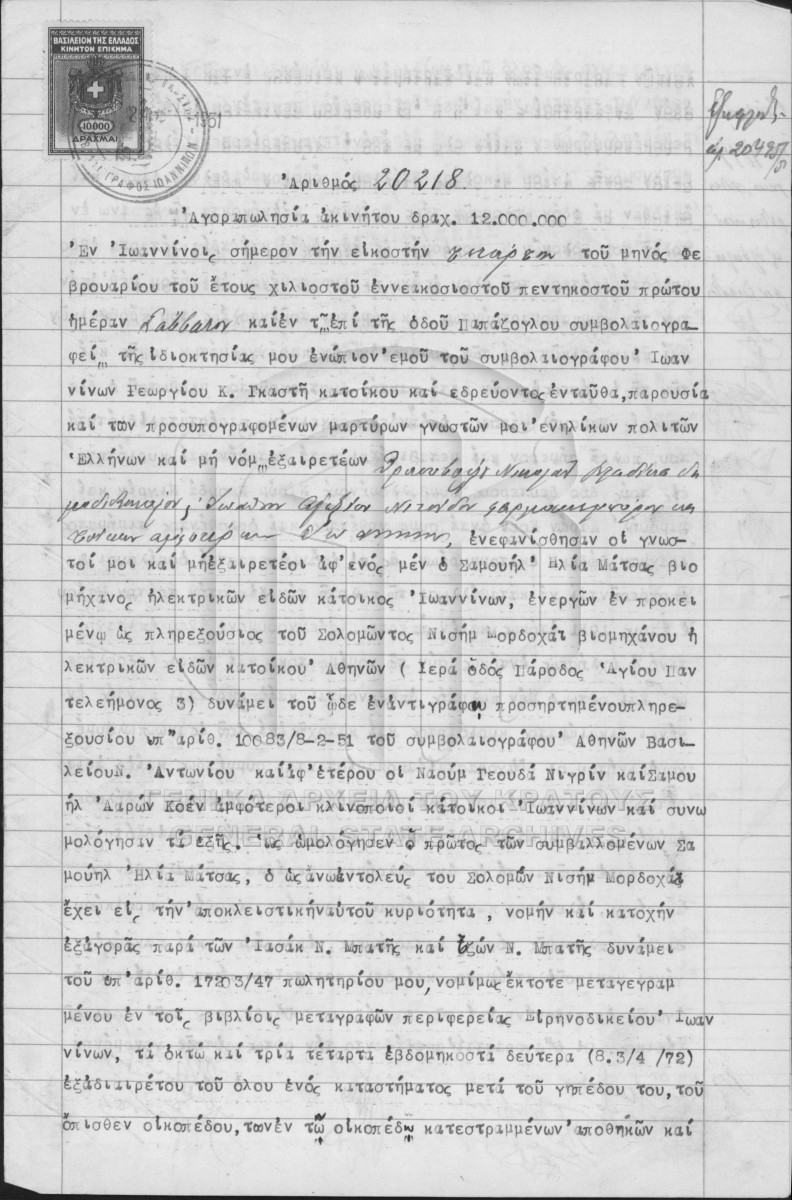 ΒΑΣΙΛΕΙΟΝ ΤΗΣ ΕΛΛΑΔΟΣ
ΚΙΝΗΤΟΝ ΕΠΙΣΗΜΑ
10000
ΔΡΑΧΜΑΙ
1951
ΓΡΑΦΟΣ ΙΩΑΝΝΙΝΩΝ
Ἀριθμός 20218
Ἀγοραπωλησία ἀκινήτου δραχ. 12.000.000
Ἐν Ἰωαννίνοις σήμερον τήν εἰκοστήν τετάρτην τοῦ μηνός Φε
βρουαρίου τοῦ ἔτους χιλιοστοῦ ἐννεακοσιοστοῦ πεντηκοστοῦ πρώτου
ἡμέραν Σάββατον καίἐν τῷ ἐπί τῆς ὁδοῦ Παπάζογλου συμβολαιογρα
φείῳ τῆς ἰδιοκτησίας μου ἐνώπιον ἐμοῦ τοῦ συμβολαιογράφου Ἰωαν
νίνων Γεωργίου Κ. Γκαστῆ κατοίκου καί ἑδρεύοντος ἐνταῦθα, παρουσία
καί τῶν προσυπογραφομένων μαρτύρων γνωστῶν μοι ἐνηλίκων πολιτῶν
Ἑλλήνων καί μή νόμῳ ἐξαιρετέων Νικολάου
ἐνεφανίσθησαν οἱ γνωσ
τοί μοι καί μήἐξαιρετέοι ἀφ' ἑνός μέν ὁ Σαμουήλ Ἠλία Μάτσας βιο
μήχανος ἠλεκτρικῶν εἰδῶν κάτοικος Ἰωαννίνων, ἐνεργῶν ἐν προκει
μένῳ ὡς πληρεξούσιος τοῦ Σολομῶντος Νισήμ Μορδοχάϊ βιομηχάνου ἠ
λεκτρικῶν εἰδῶν κατοίκου Ἀθηνῶν ( Ἱερά ὁδός Πάροδος Ἁγίου Παν
τελεήμονος 3) δυνάμει τοῦ ὧδε ἐνἀντιγράφῳ προσηρτημένουπληρε-
ξουσίου ὑπ' ἀριθ. 10083/8-2-51 τοῦ συμβολαιογράφου Ἀθηνῶν Βασι-
λείουΝ. Ἀντωνίου καίἀφ' ἑτέρου οἱ Ναούμ Γεουδά Νιγρίν καίΣαμου
ήλ Ἀαρών Κοέν ἀμφότεροι κλινοποιοί κάτοικοι Ἰωαννίνων καί συνω
μολόγησαν τά ἑξῆς. Ὡς ὡμολόγησεν ὁ πρῶτος τῶν συμβαλλομένων Σα
μουήλ Ἠλία Μάτσας, ὁ ὡςἄνωἐντολεύς του Σολομῶν Νισήμ Μορδοχάϊ
ἔχει εἰς τήν ἀποκλειστικήναὐτοῦ κυριότητα, νομήν καί κατοχήν
ἐξἀγορᾶς παρά τῶν Ἰασάκ Ν. Μπατῆς καί Ν. Μπατῆς δυνάμει
τοῦ ὑπ' ἀριθ. 17203/47 πωλητηρίου μου, νομίμως ἔκτοτε μεταγεγραμ
μένου ἐν τοῖς βιβλίοις μεταγραφῶν περιφερείας Εἰρηνοδικείου Ἰωαν
νίνων, τά ὀκτώ καί τρία τέταρτα ἑβδομηκοστά δεύτερα (8.3/4 /72)
ἐξἀδιαιρέτου τοῦ ὅλου ἑνός καταστήματος μετά τοῦ γηπέδου του, τοῦ
ὄπισθεν οἰκοπέδου, τωνἐν τῷ οἰκοπέδῳ κατεστραμμένων ἀποθηκῶν καί
ΓΕΝΙΚΑ ΑΡΧΕΙΑ ΤΟΥ ΚΡΑΤΟΥΣ
GENERAL STATE ARCHIVES